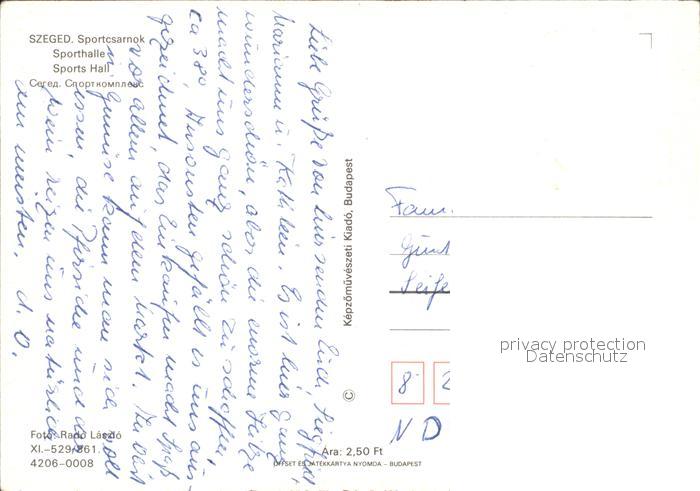 SZEGED. Sportcsarnok
Sporthalle
Sports Hall
Сегед. Спорткомплекс
Liebe Grüße von hier senden Euch, Siegfried
Marianne u. Kathlein. Es ist hier ganz
wunderschön, aber die enorme Hitze
macht uns ganz schön zu schaffen,
ca 38°. Ansonsten gefällt es uns aus-
gezeichnet, das Einkaufen macht Spaß
vor allem auf dem Markt. An Obst
u. gemüse kann man sich voll
essen, die Pfirsiche und der
Wein reizen uns natürlich
am meisten. d. O.
Fotó: Radó László
XI.–529/861.
4206–0008
Képzőművészeti Kiadó, Budapest
©
Ára: 2,50 Ft
OFFSET ÉS JÁTÉKKÁRTYA NYOMDA – BUDAPEST
Fam.
Günt
Seife
8 2
ND
privacy protection
Datenschutz